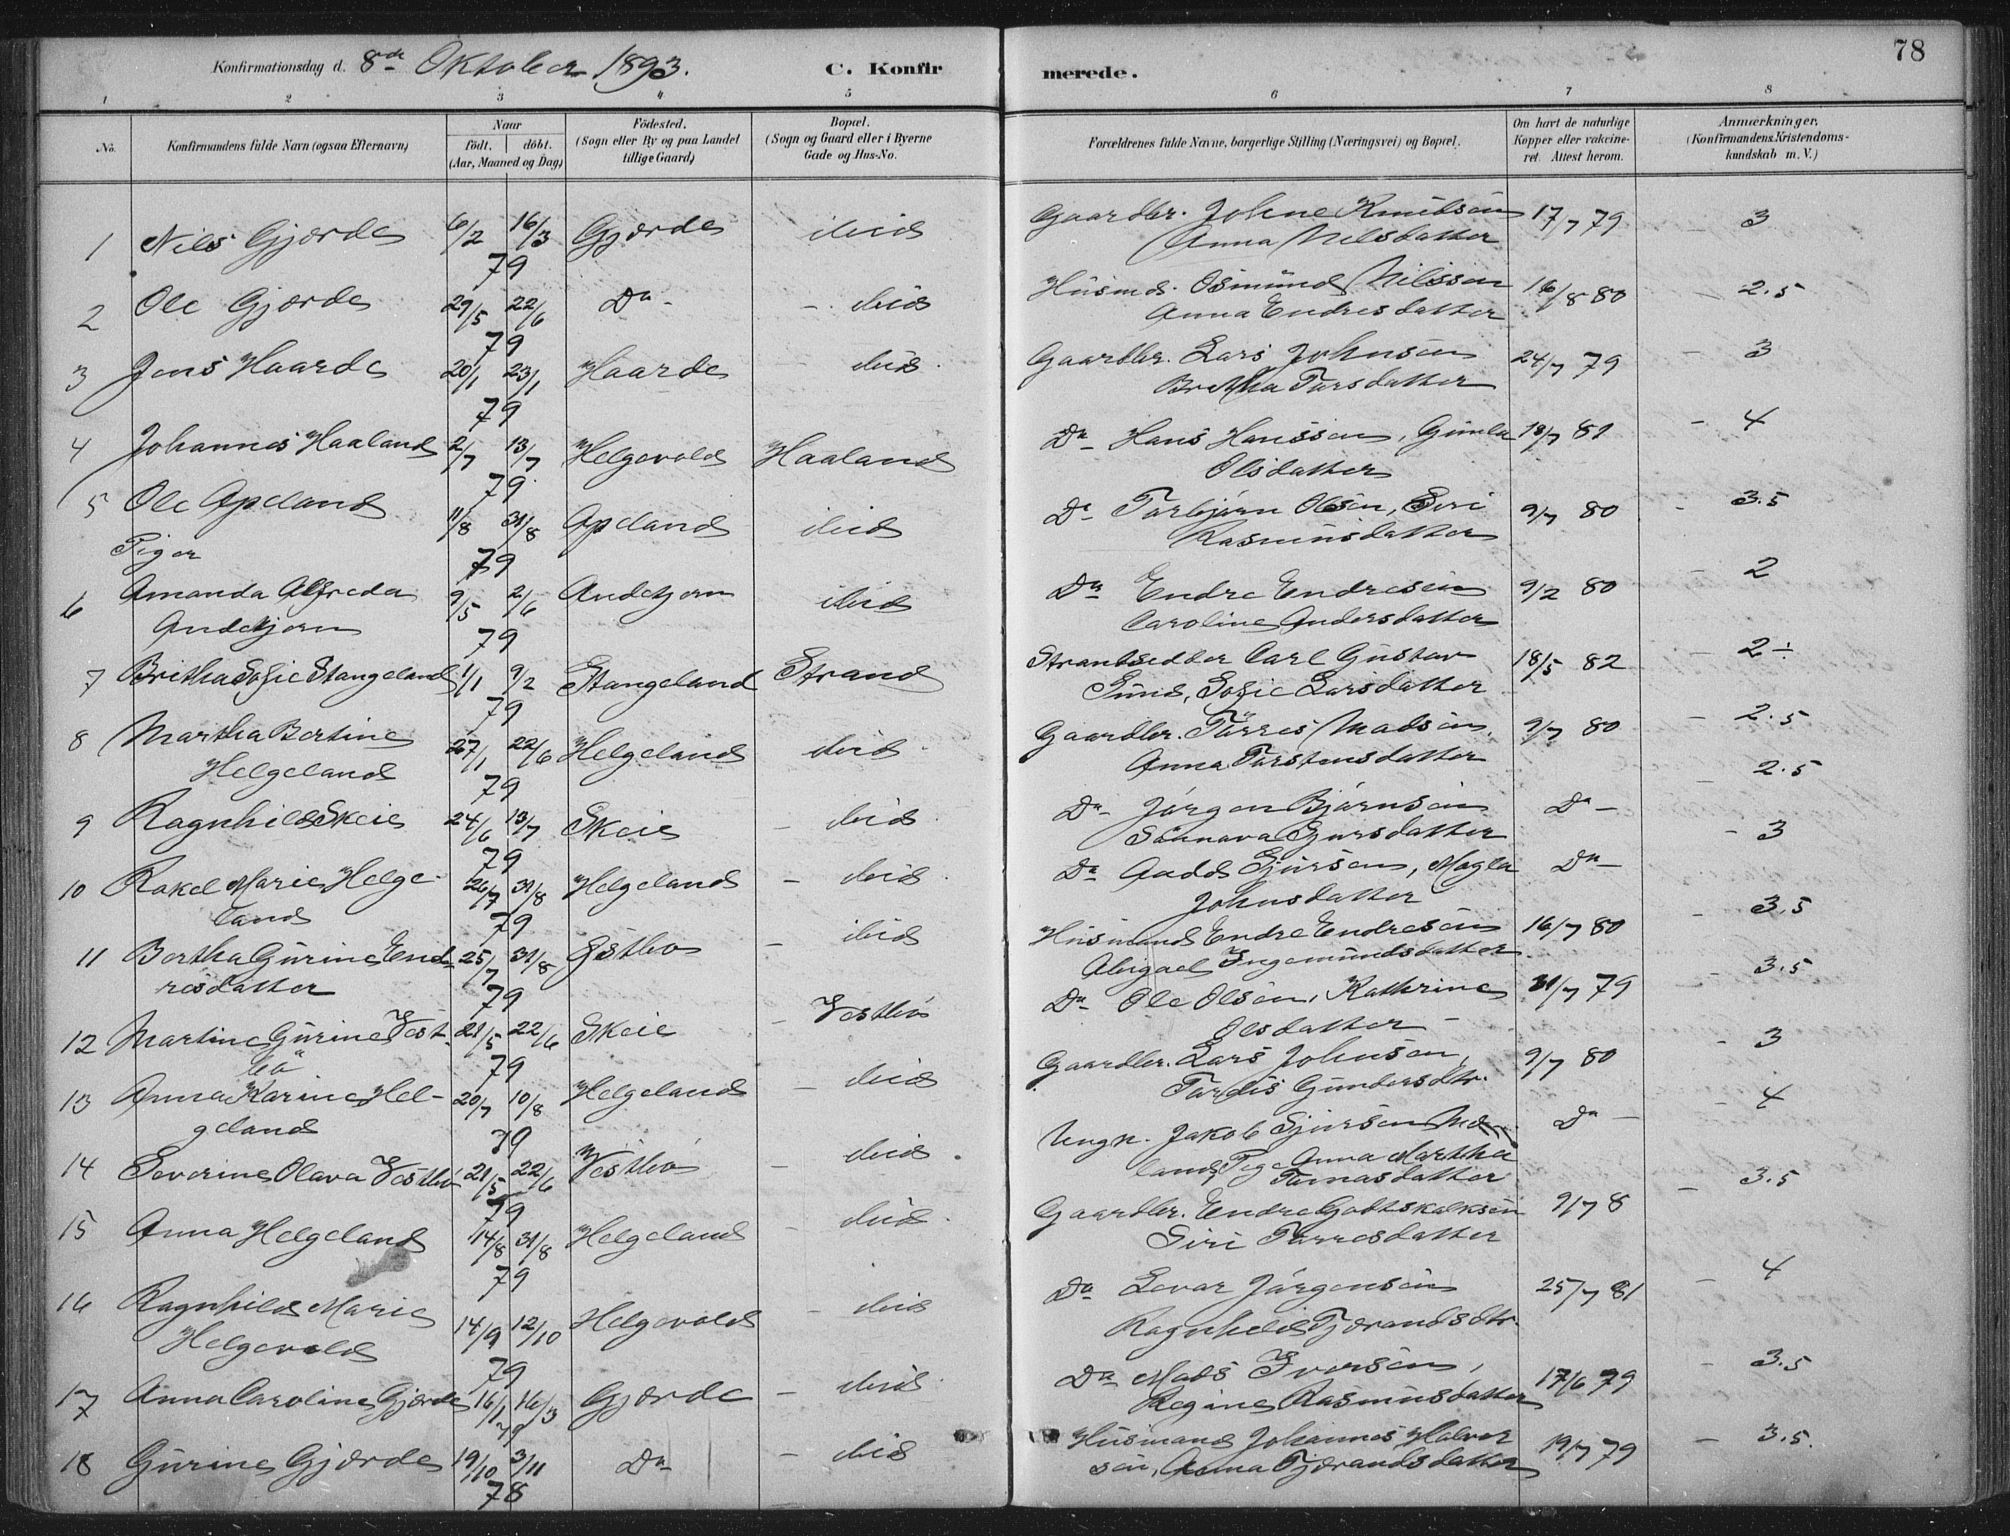 Konfirmationsdag d. 8de Oktober 1893. C. Konfir merede. 78
1 2 3 4 5 6 7 8
No. Konfirmandens fulde Navn (ogsaa Efternavn) Naar födt. döbt. (Aar, Maaned og Dag) Födested. (Sogn eller By og paa Landet tillige Gaard) Bopæl. (Sogn og Gaard eller i Byerne Gade og Hus-No. Forældrenes fulde Navne, borgerlige Stilling (Næringsvei) og Bopæl. Om havt de naturlige Kopper eller vakcineret. Attest herom. Anmærkninger. (Konfirmandens Kristendomskundskab m. V.)
1 Nils Gjærde 6/2 16/3 79 Gjærde ibid Gaardbr. Johne Knudsen 17/7 79 3
Anna Nilsdatter
2 Ole Gjærde 29/5 22/6 79 Do - ibid Husmd. Osmund Nilssen 16/8 80 2.5
Anna Endresdatter
3 Jens Haarde 20/1 23/1 79 Haarde - ibid. Gaardbr. Lars Johnsen 24/7 79 3
Bretha Torsdatter
4 Johannes Haaland 2/7 13/7 79 Helgevold Haaland Do Hans Hanssen, Gunla 18/7 81 4
Olsdatter
5 Ole Apeland 11/8 31/8 79 Apeland ibid Do Torbjørn Olsen, Siri 9/7 80 3.5
Rasmusdatter
Piger
6 Amanda Alfreda 9/5 2/6 79 Andetjern ibid Do Endre Endresen 9/2 80 2
Andetjern Caroline Andersdatter
7 Britha Sofie Stangeland 1/1 9/2 79 Stangeland Strand Strandsidder Carl Gustav 18/5 82 2÷
Sund, Sofie Larsdatter
8 Martha Bertine 27/1 22/6 79 Helgeland ibid Gaardbr. Tørres Madsen, 9/7 80 2.5
Helgeland Anna Torstensdatter
9 Ragnhild Skeie 24/6 13/7 79 Skeie - ibid Do Jørgen Bjørnsen Do 2.5
Sønnava Sjursdatter
10 Rakel Marie Helge- 26/7 31/8 79 Helgeland - ibid. Do Aadd Sjursen, Magla Do 3
land Johnsdatter
11 Bertha Gurine End- 25/7 31/8 79 Østbø - ibid Husmand Endre Endresen 16/7 80 3.5
resdatter Abigael Ingemundsdatter
12 Martine Gurine Vest- 21/5 22/6 79 Skeie - Vestbø Do Ole Olsen, Kathrine 31/7 79 3.5
bø Olsdatter
13 Anna Karine Hel- 20/7 10/8 79 Helgeland - ibid Gaardbr. Lars Johnsen, 9/7 80 3
geland Tordis Gundersdtr.
14 Severine Olava Vestbø 21/5 22/6 79 Vestbø - ibid. Ungk. Jakob Sjursen Do 4
land, Pige Anna Martha
Tomasdatter
15 Anna Helgeland 14/8 31/8 79 Helgeland - ibid. Gaardbr. Endre Godtskalksen 9/7 8 3.5
Siri Tørresdatter
16 Ragnhild Marie 14/9 12/10 79 Helgevold - ibid Do Levar Jørgensen 25/7 81 4
Helgevold Ragnhild Tjærandsdtr.
17 Anna Caroline Gjærde 16/1 16/3 79 Gjærde - ibid Do Mads Iversen, 17/6 79 3.5
Regine Rasmusdatter
18 Gurine Gjærde 19/10 3/11 78 Do - ibid Husmand Johannes Halvor 19/7 79 3.5.
sen, Anna Tjærandsdatter